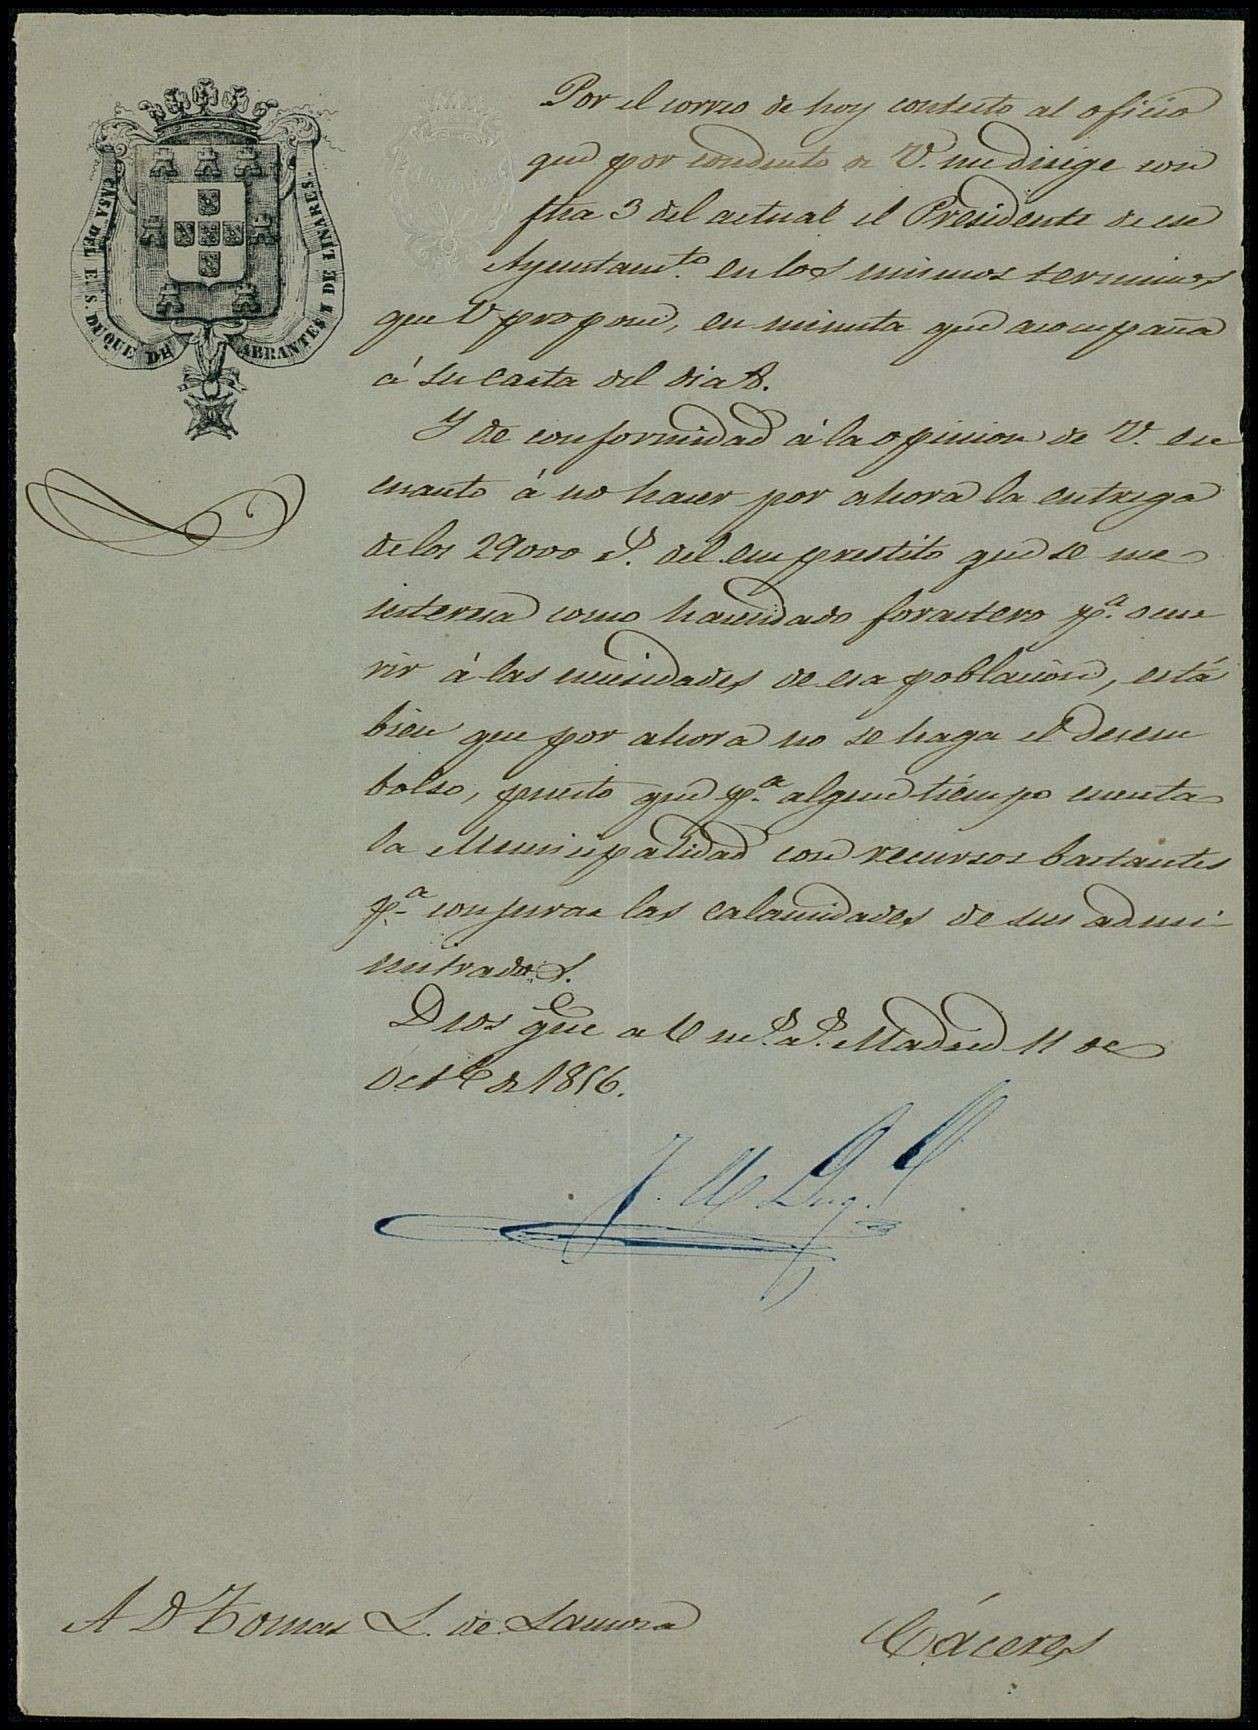 CASA DEL E. S. DUQUE DE ABRANTES Y DE LINARES.
Por el correo de hoy contesto al oficio
que por conducto de V. me dirige con
fha 3 del actual el Presidente de ese
Ayuntamto. en los mismos terminos
que V propone, en minuta que acompaña
á su carta del dia 8.
Y de conformidad á la opinion de V. en
cuanto á no hacer por ahora la entrega
de los 29000 rs. del emprestito que se me
interesa como hacendado forastero pa. ocur
rir á las necesidades de esa poblacion, está
bien que por ahora no se haga el desem
bolso, puesto que pa. algun tiempo cuenta
la Municipalidad con recursos bastantes
pa. conjurar las calamidades de sus admi-
nistrados.
Dios gue a V ms. as. Madrid 11 de
Octe de 1856.
A D Tomas S. de Lamora
Cáceres